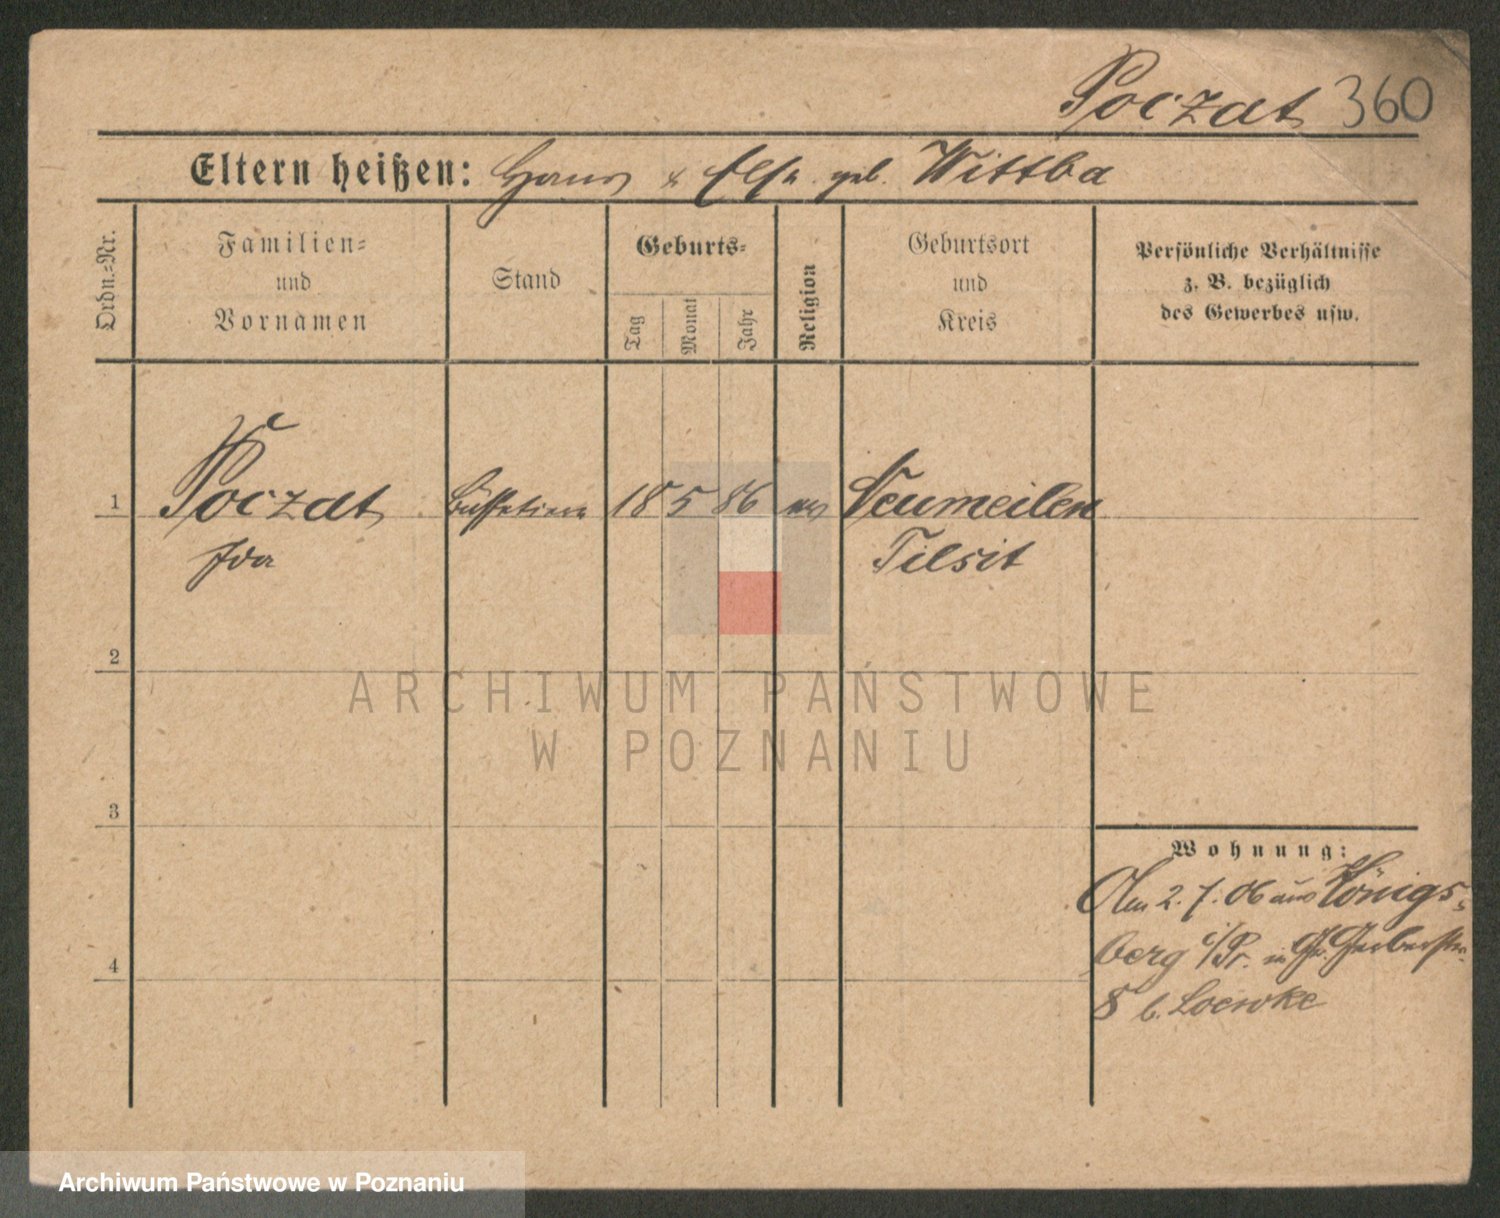 Poczat 360
Eltern heißen: Hans & Else geb. Wittba
Ordn.=Nr.
Familien=
und
Vornamen
Stand
Geburts=
Tag
Monat
Jahr
Religion
Geburtsort
und
Kreis
Persönliche Verhältnisse
z. B. bezüglich
des Gewerbes usw.
1 Poczat 18 5 86 ev Neumeilen
Ida Tilsit
2
ARCHIWUM PAŃSTWOWE
W POZNANIU
3
Wohnung:
Am 2. 7. 06 aus Königs=
berg i/Pr. in Gr. Gerberstr.
4
8 b. Loewke
Archiwum Państwowe w Poznaniu